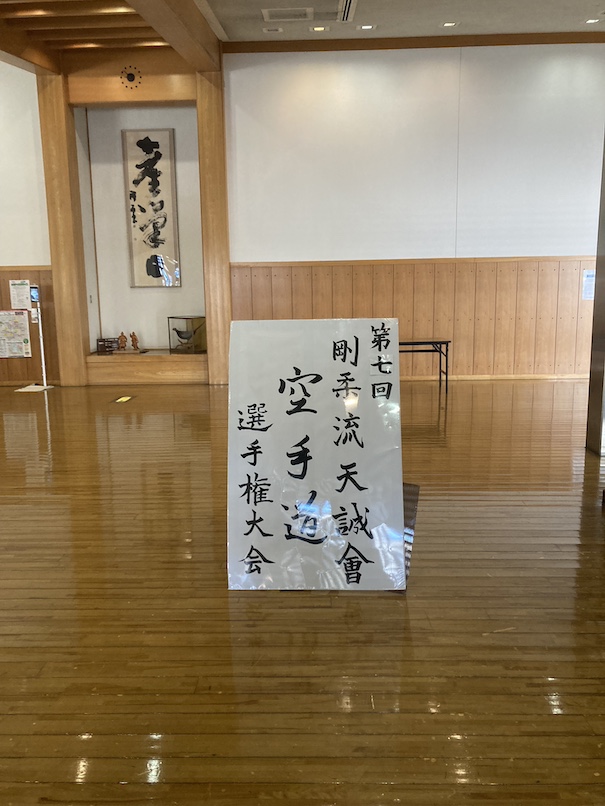 第七回
剛柔流 天誠會
空手道
選手権大会